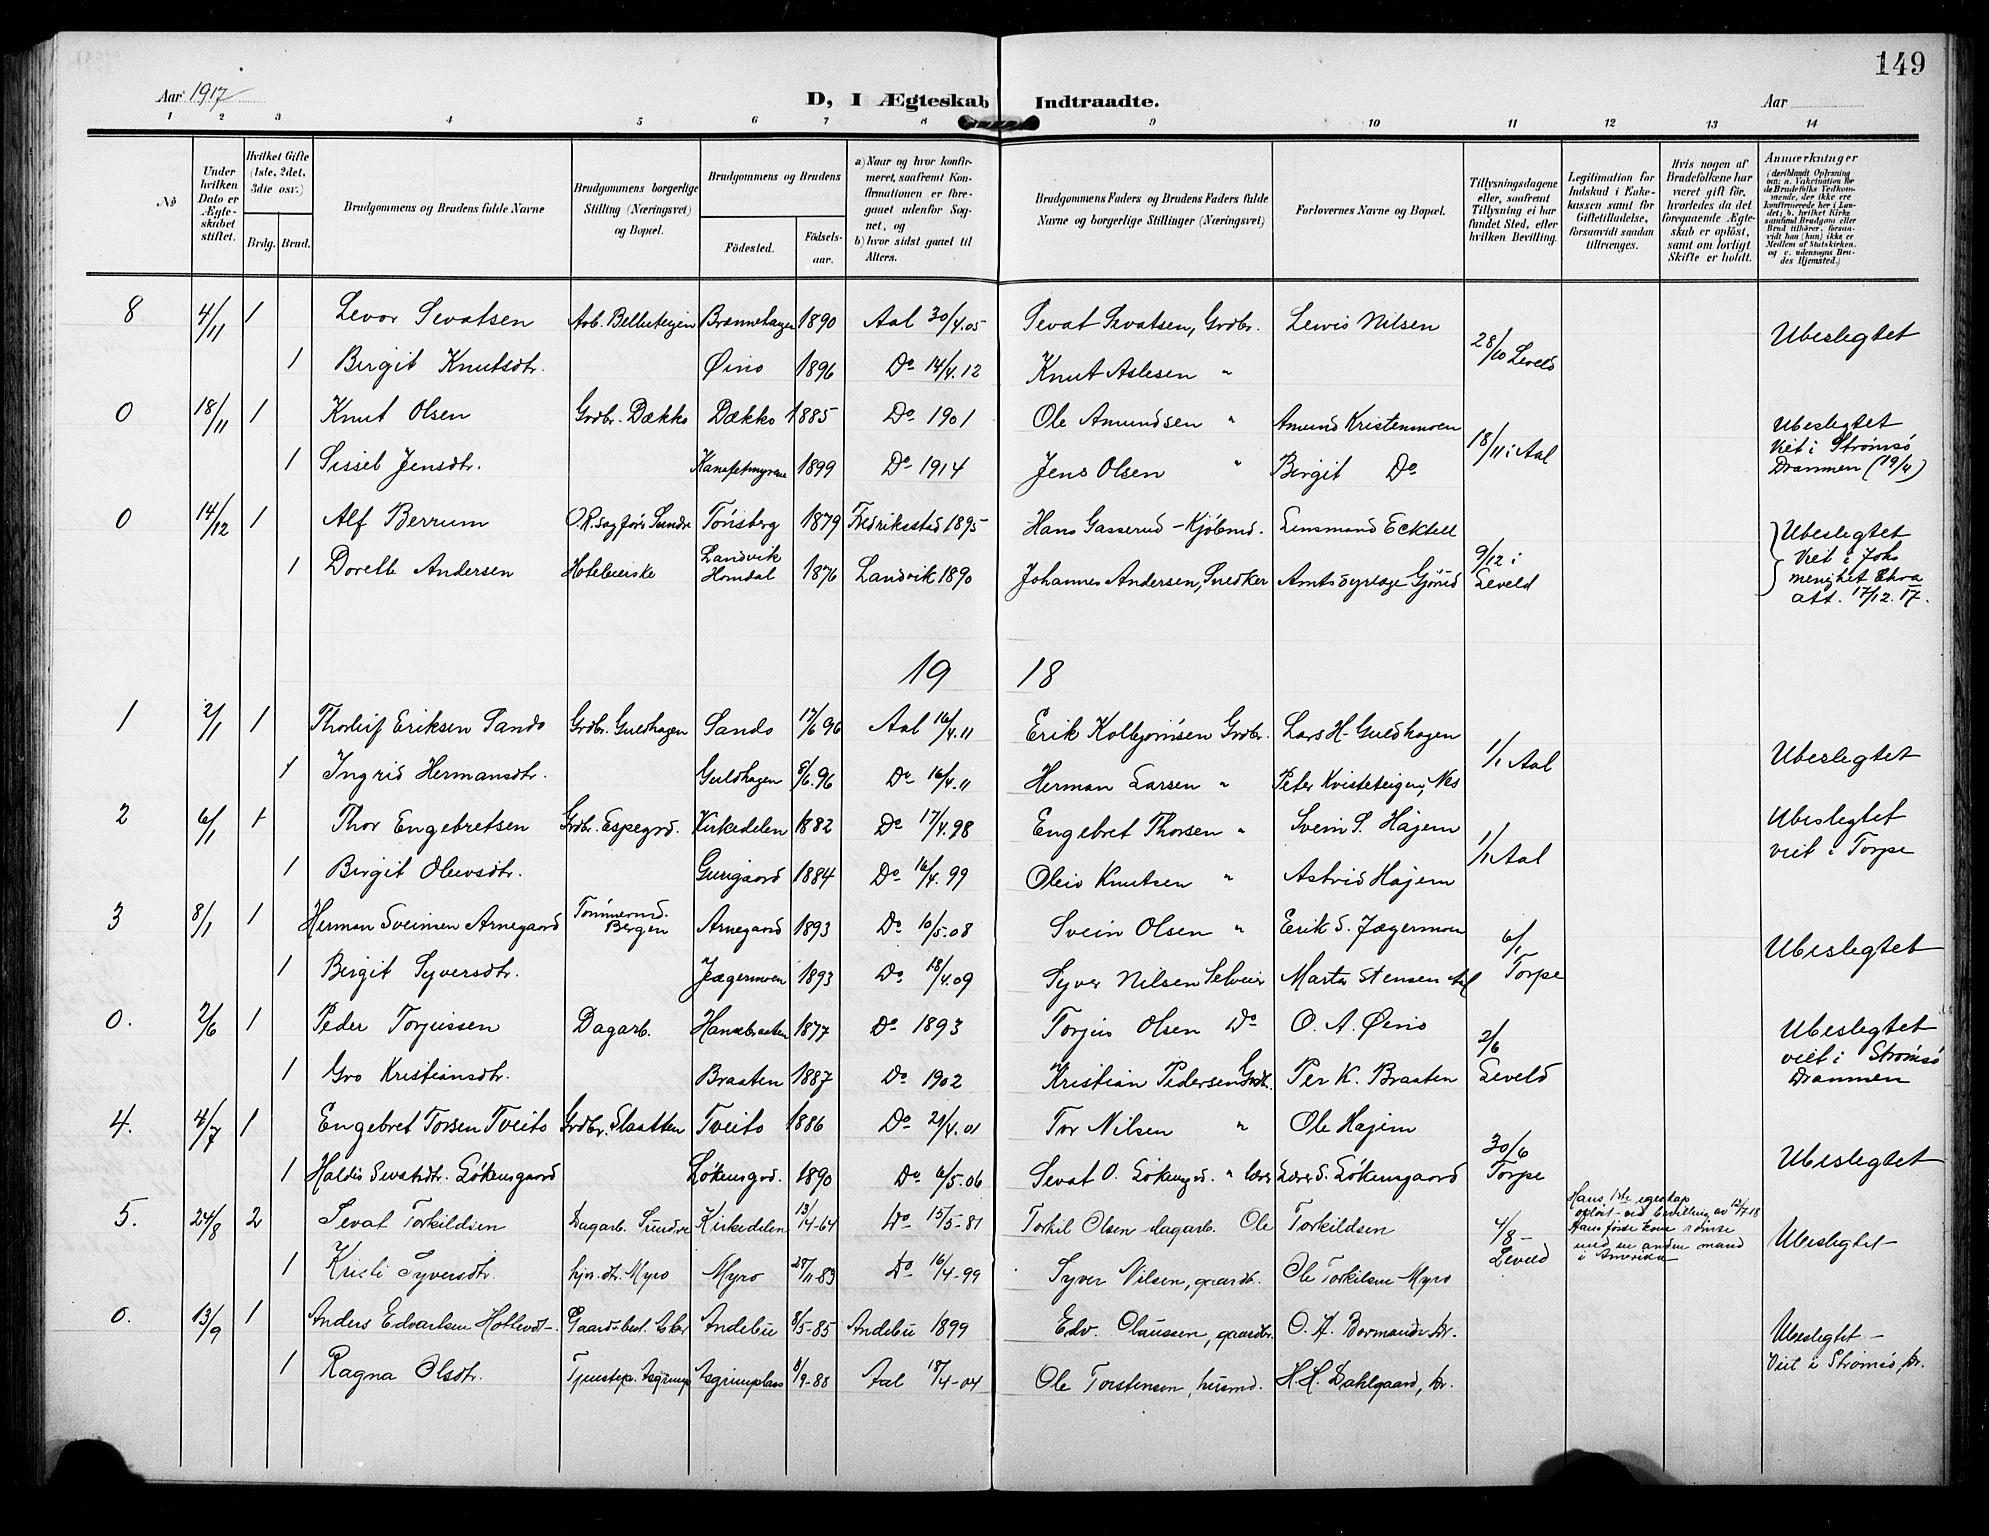 149
Aar 1917 D, I Ægteskab Indtraadte. Aar
1 2 3 4 5 6 7 8 9 10 11 12 13 14
№
Under hvilken Dato er Ægteskabet stiftet.
Hvilket Gifte (1ste, 2det, 3die osv.)
Brdg. Brud.
Brudgommens og Brudens fulde Navne
Brudgommens borgerlige Stilling (Næringsvei) og Bopæl.
Brudgommens og Brudens
Födested. Födselsaar.
a) Naar og hvor konfirmeret, saafremt Konfirmationen er foregaaet udenfor Sognet, og
b) hvor sidst gaaet til Alters.
Brudgommens Faders og Brudens Faders fulde Navne og borgerlige Stillinger (Næringsvei)
Forlovernes Navne og Bopæl.
Tillysningsdagene eller, saafremt Tillysning ei har fundet Sted, efter hvilken Bevilling.
Legitimation for Indskud i Enkekassen samt for Giftetilladelse, forsaavidt saadan tiltrænges.
Hvis nogen af Brudefolkene har været gift för, hvorledes da det foregaaende Ægteskab er oplöst, samt om lovligt Skifte er holdt.
Anmærkninger (deriblandt Oplysning om: a. Vakcination for de Brudefolks Vedkommende, der ikke ere konfirmerede her i Landet; b. hvilket Kirkesamfund Brudgom eller Brud tilhörer, forsaavidt han (hun) ikke er Medlem af Statskirken. og c. udensogns Brudes Hjemsted.)
8 4/11 1 Levor Sevatsen Arb. Brænnehagen 1890 Aal 30/4.05 Sevat Sevatsen, Grdbr. Lewis Nilsen 28/10 Leveld Ubeslegtet
1 Birgit Knutsdtr. Øino 1896 Do 14/4.12 Knut Aslesen "
0 18/11 1 Knut Olsen Grdbr. Dækko Dækko 1885 Do 1901 Ole Amundsen " Amund Kristenmoen 18/11 i Aal Ubeslegtet
Viet i Strømsö
Drammen (19/4)
1 Sissel Jensdtr. 1899 Do 1914 Jens Olsen " Birgit Do
0 14/12 1 Alf Berrum O.R.sagförer Sundre Tönsberg 1879 Fredriksstad 1895 Hans Gasserud - Kjöbmd. Lensmand Ecktell 9/12 i Leveld Ubeslegtet
Viet i Joh. menighet
att. 17/12.17.
1 Dorette Andersen Landvik Homdal 1876 Landvik 1890 Johannes Andersen, Snedker
19 18
1 2/1 1 Thorleif Eriksen Sando Grdbr. Guldhagen Sando 17/6 96 Aal 16/4.11 Erik Kolbjörnsen Grdbr. Lars H. Guldhagen 1/1 Aal Ubeslegtet
1 Ingrid Hermansdtr. Guldhagen 8/6.96 Do 16/4.11 Herman Larsen " Peter Kvisteteigen, Nes
2 6/1 1 Thor Engebretsen Grdbr. Espegrd. Kirkedelen 1882 Do 17/4.98 Engebret Thorsen " Svein S. Hajem 1/1 Aal Ubeslegtet
viet i Torpe
1 Birgit Olevsdtr. Gurigaard 1884 Do 16/4.99 Oleiv Knutsen " Astrid Hajem
3 8/1 1 Herman Sveinsen Arnegaard Tömmermd. Bergen Arnegaard 1893 Do 10/5.08 Svein Olsen " Erik S. Jægermoen 6/1 Torpe Ubeslegtet
1 Birgit Syversdtr. Jægermoen 1893 Do 18/4.09 Syver Nilsen Selveier Marta Stensen
0. 2/6 1 Peder Torjussen Dagarb. Hansebraaten 1877 Do 1893 Torjus Olsen Do O. A. Øino 2/6 Leveld Ubeslegtet
viet i Strömsö
Drammen
1 Gro Kristiansdtr. Braaten 1887 Do 1902 Kristian Pedersen Grdb. Per K. Braaten
4. 4/7 1 Engebret Torsen Tveito Grdbr. Slaatten Tveito 1886 Do 21/4.01 Tor Nilsen " Ole Hajem 30/6 Torpe Ubeslegtet
1 Haldis Sevatsdtr. Lökensgaard Lökensgrd. 1890 Do 6/5.06 Sevat O. Lökensgrd. " S. Lökensgaard
5. 24/8 2 Sevat Torkildsen Dagarb. Sundre Kirkedelen 13/4-64 Do 15/5-81 Torkil Olsen dagarb. Ole Torkildsen 4/8 - Leveld Hans 1ste egteskap oplöst ved bevilling av 12/7-18
Hans förste kone römte med en anden mand i Amerika Ubeslegtet
1 Kristi Syversdtr. hjv. dtr. Myro Myro 27/11-83 Do 16/4-99 Syver Nilsen, gaardb. Ole Torkilsen Myro
0. 13/9 1 Anders Edvartsen Gaardsbest. Andebu 8/5-85 Andebu 1899 Edv. Claussen, gaardbr. O. A. Bormands Dr. Ubeslegtet -
Viet i Strømsö, Dr.
1 Ragna Olsdtr. Asgrimplass 8/9-88 Aal 18/4-04 Ole Torstensen, husmd. H. H. Dahlgaard, Dr.